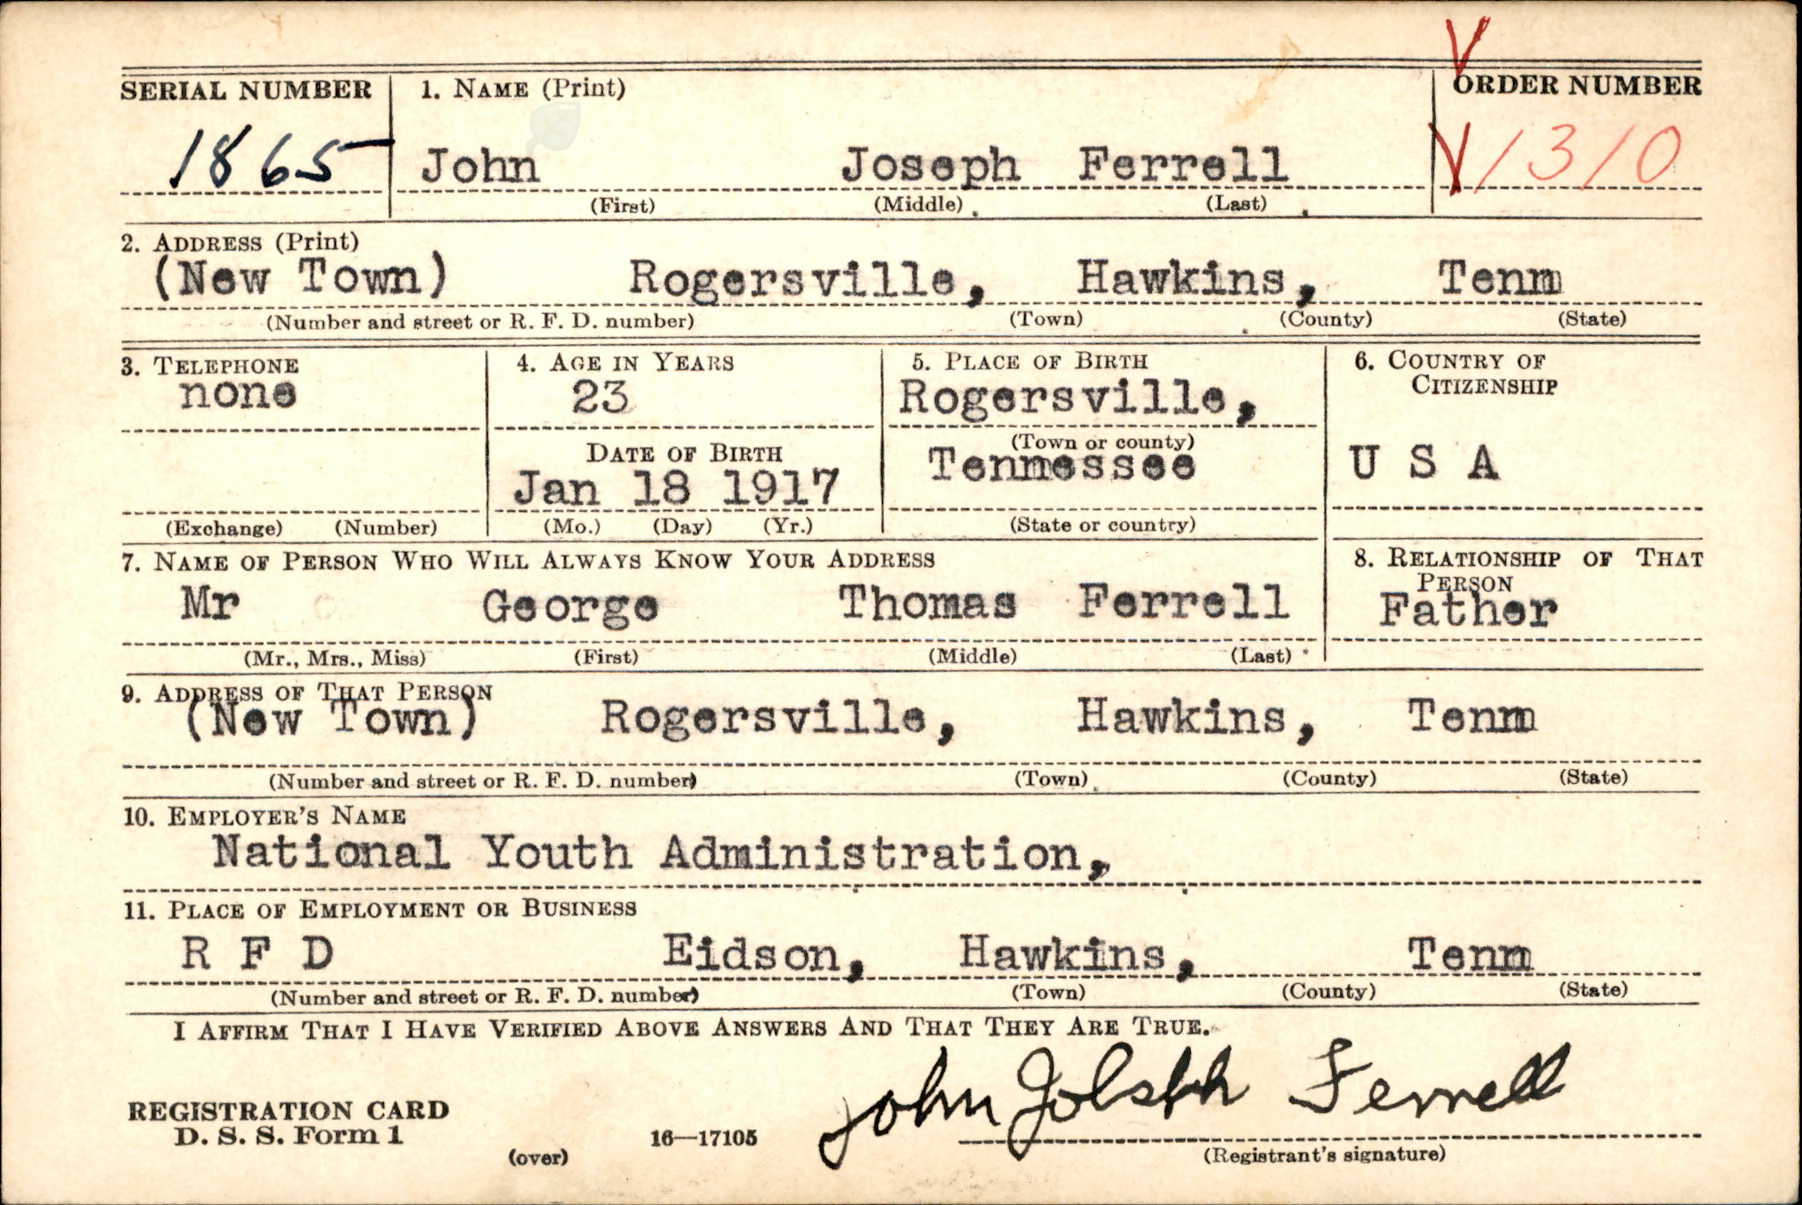 SERIAL NUMBER 1. NAME (Print) ORDER NUMBER
1865 John Joseph Ferrell V1310
(First) (Middle) (Last)
2. ADDRESS (Print)
(New Town) Rogersville, Hawkins, Tenn
(Number and street or R. F. D. number) (Town) (County) (State)
3. TELEPHONE 4. AGE IN YEARS 5. PLACE OF BIRTH 6. COUNTRY OF
CITIZENSHIP
none 23 Rogersville,
DATE OF BIRTH (Town or county)
Tennessee U S A
Jan 18 1917
(Exchange) (Number) (Mo.) (Day) (Yr.) (State or country)
7. NAME OF PERSON WHO WILL ALWAYS KNOW YOUR ADDRESS 8. RELATIONSHIP OF THAT
PERSON
Mr George Thomas Ferrell Father
(Mr., Mrs., Miss) (First) (Middle) (Last)
9. ADDRESS OF THAT PERSON
(New Town) Rogersville, Hawkins, Tenn
(Number and street or R. F. D. number) (Town) (County) (State)
10. EMPLOYER'S NAME
National Youth Administration,
11. PLACE OF EMPLOYMENT OR BUSINESS
R F D Eidson, Hawkins, Tenn
(Number and street or R. F. D. number) (Town) (County) (State)
I AFFIRM THAT I HAVE VERIFIED ABOVE ANSWERS AND THAT THEY ARE TRUE.
John Joseph Ferrell
REGISTRATION CARD
D. S. S. Form 1 16—17105
(over) (Registrant's signature)